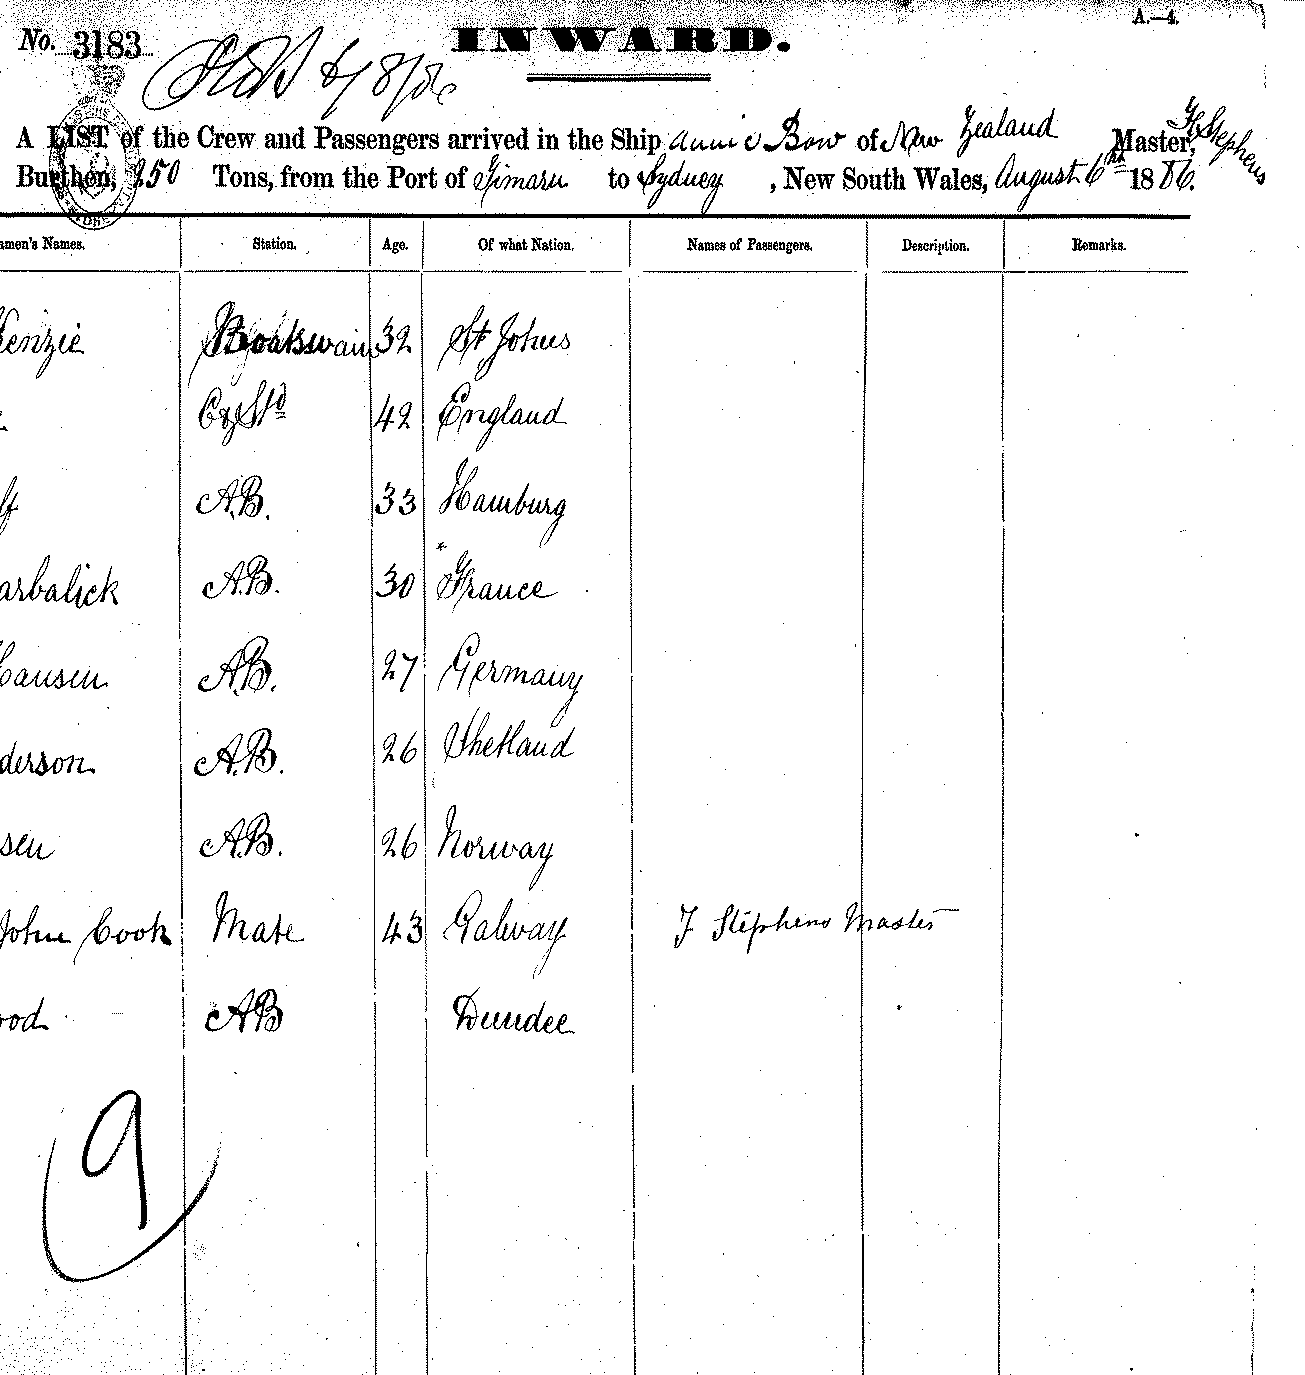 A.—4.
No. 3183
INWARD.
6/8/86
A LIST of the Crew and Passengers arrived in the Ship Annie Bow of New Zealand Master, F Stephens
Burthen, 250 Tons, from the Port of Timaru to Sydney , New South Wales, August 6th 1886.
men's Names. Station. Age. Of what Nation. Names of Passengers. Description. Remarks.
Kenzie Boatswain 32 St Johns
Ck & Std 42 England
lf A.B. 33 Hamburg
arbalick A.B. 30 France
Hansen A.B. 27 Germany
derson A.B. 26 Shetland
sen A.B. 26 Norway
John Cook Mate 43 Galway F Stephens Master
ood AB Dundee
9